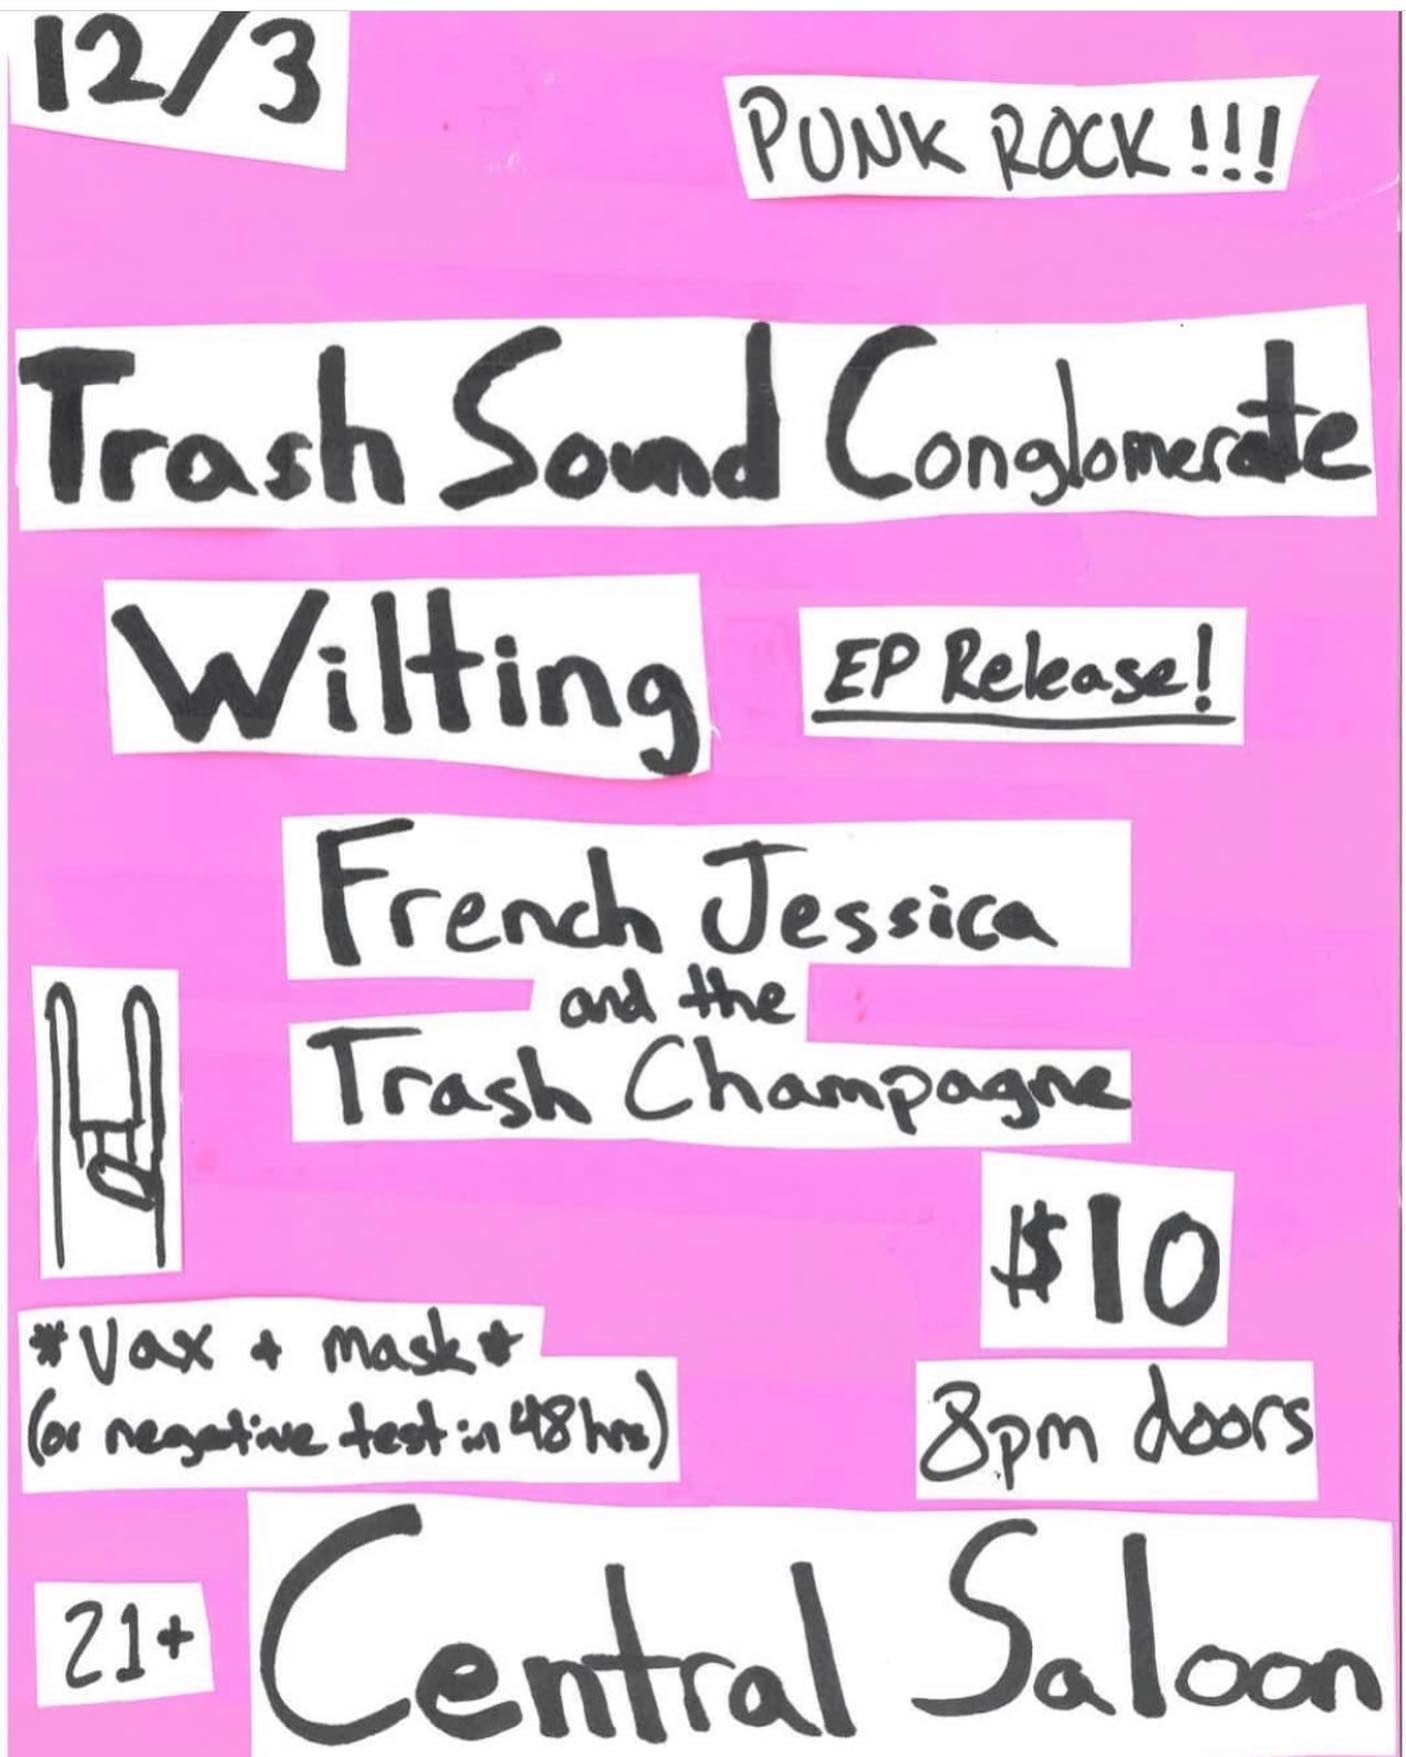 12/3
PUNK ROCK!!!
Trash Sound Conglomerate
Wilting
EP Release!
French Jessica
and the
Trash Champagne
$10
*Vax + mask*
(or negative test in 48 hrs)
8pm doors
21+
Central Saloon